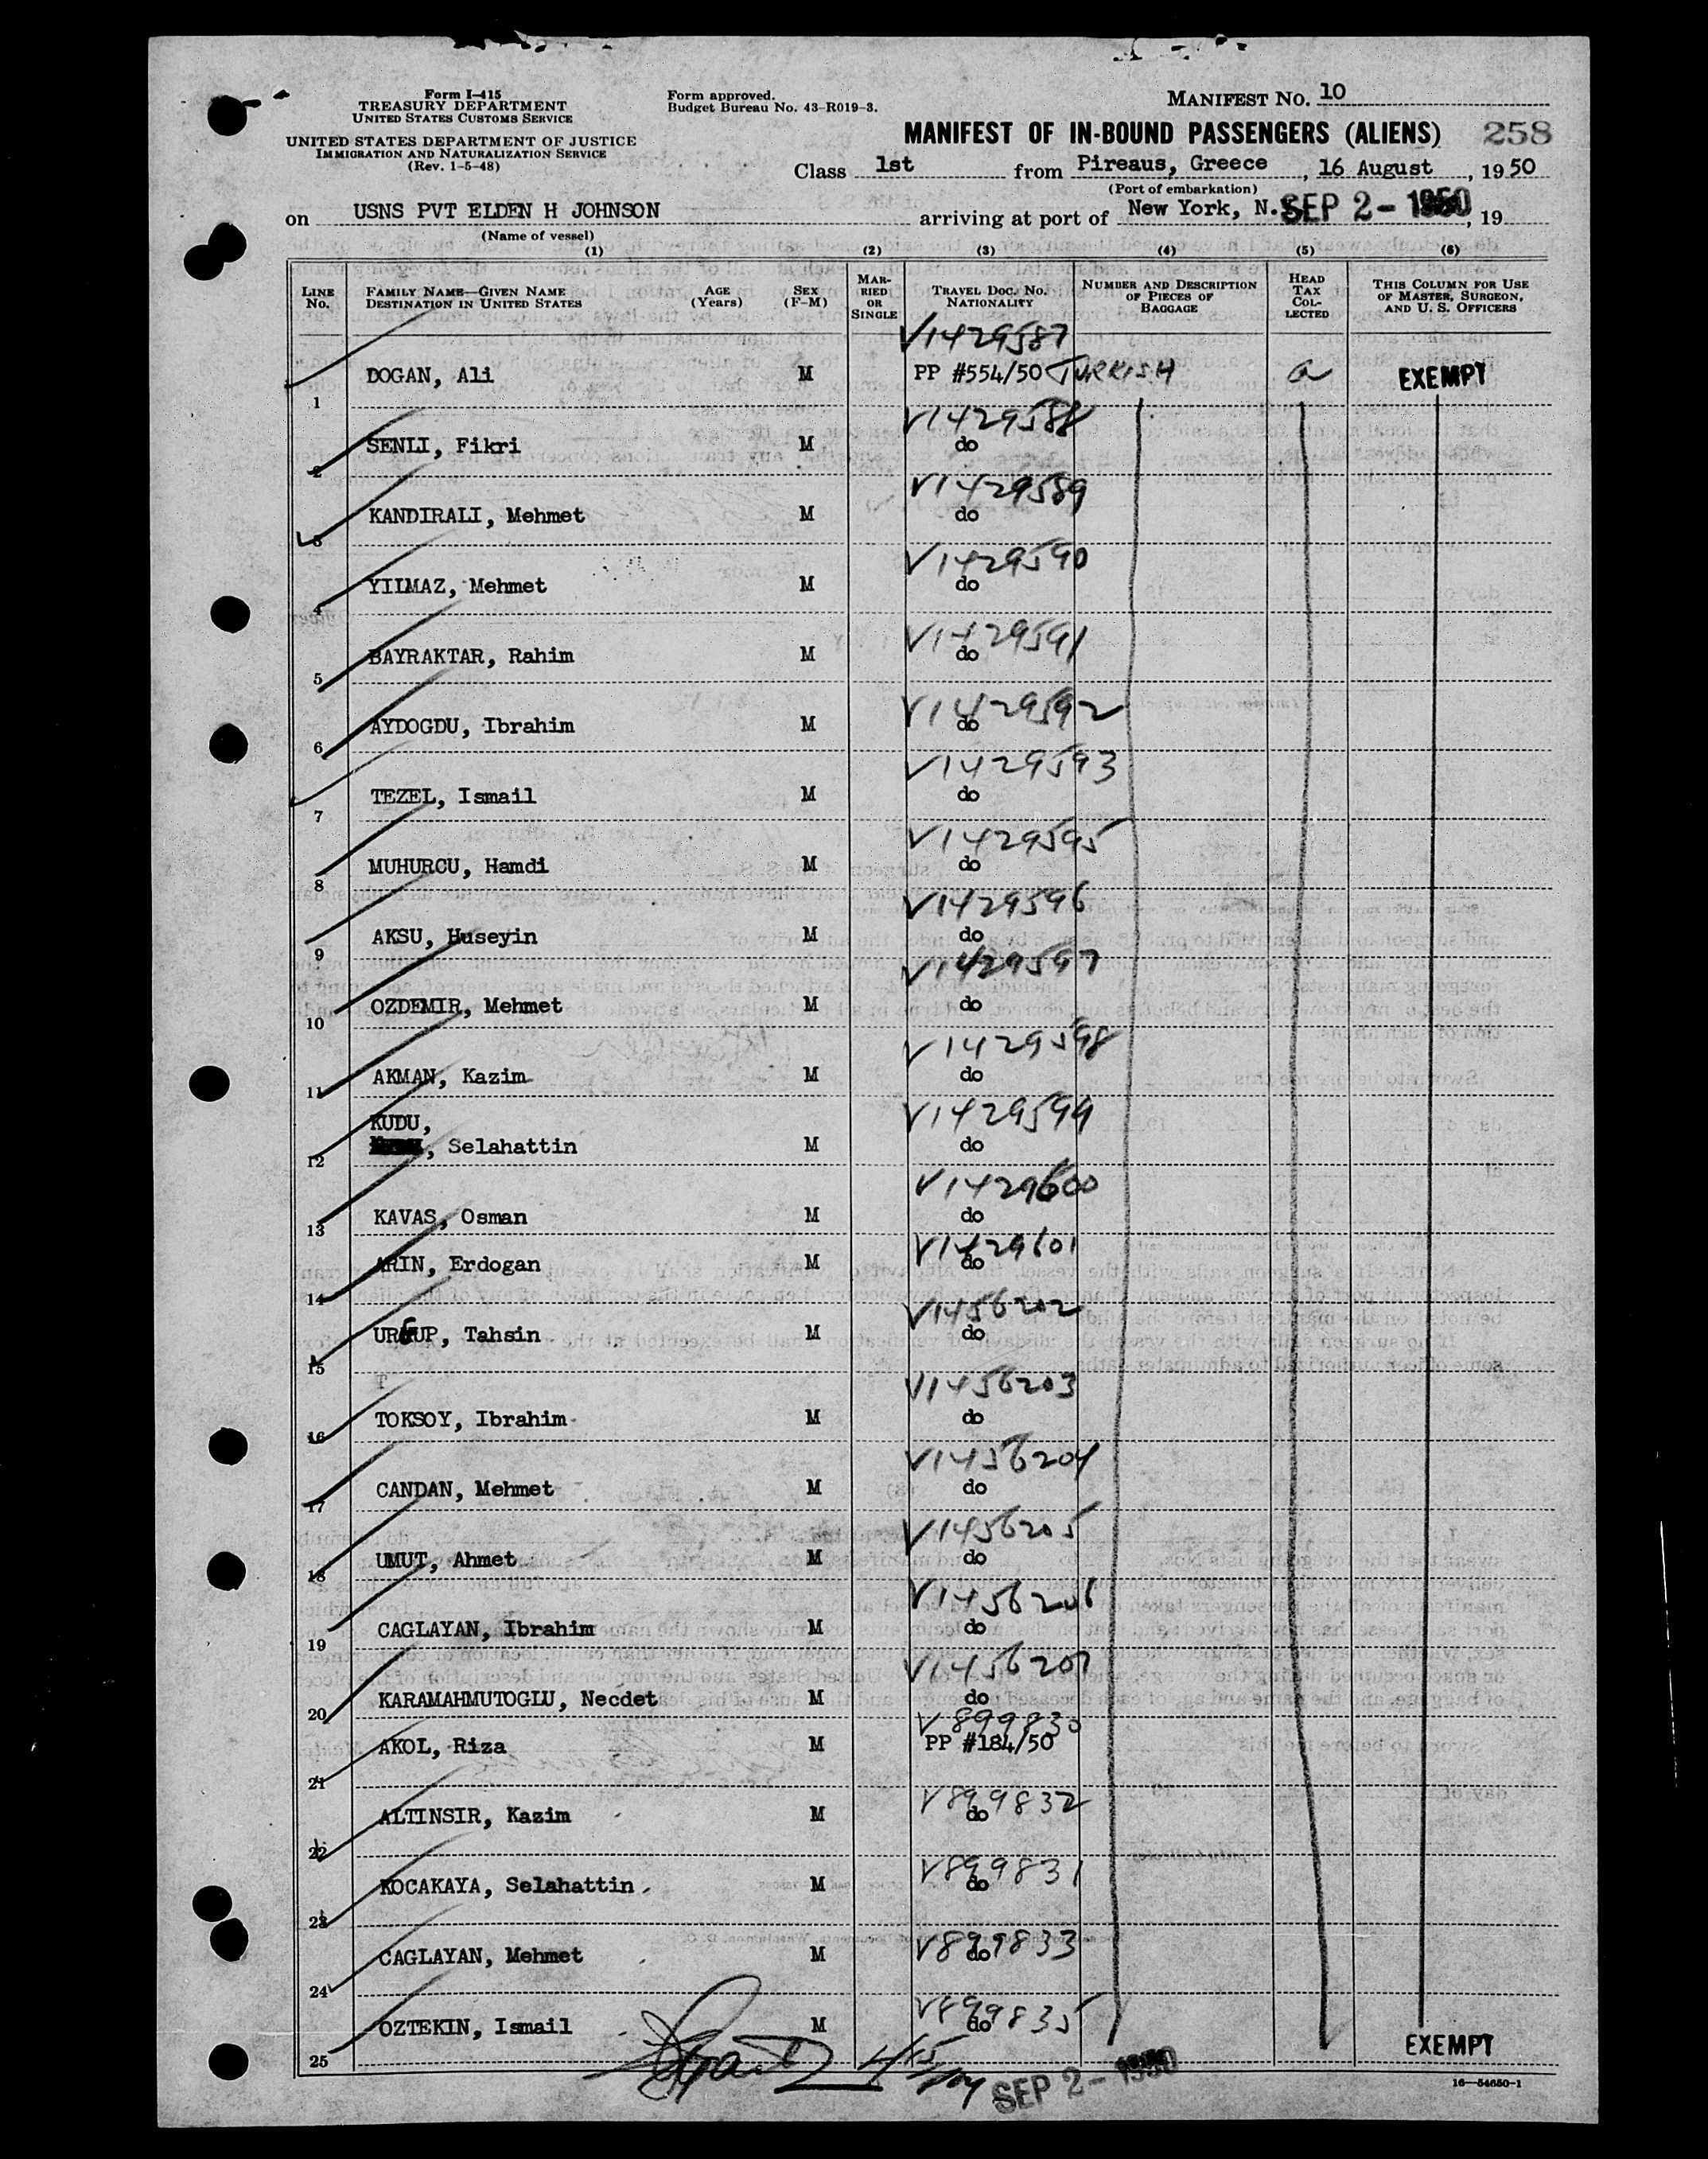 Form I-415
TREASURY DEPARTMENT
UNITED STATES CUSTOMS SERVICE
UNITED STATES DEPARTMENT OF JUSTICE
IMMIGRATION AND NATURALIZATION SERVICE
(Rev. 1-5-48)
Form approved.
Budget Bureau No. 43-R019-3.
MANIFEST NO. 10
MANIFEST OF IN-BOUND PASSENGERS (ALIENS) 258
Class 1st from Pireaus, Greece, 16 August, 1950
(Port of embarkation)
on USNS PVT ELDEN H JOHNSON arriving at port of New York, N. SEP 2 - 1950, 19
(Name of vessel)
(1) (2) (3) (4) (5) (6)
LINE No. FAMILY NAME—GIVEN NAME DESTINATION IN UNITED STATES AGE (Years) SEX (F-M) MARRIED OR SINGLE TRAVEL DOC. NO. NATIONALITY NUMBER AND DESCRIPTION OF PIECES OF BAGGAGE HEAD TAX COLLECTED THIS COLUMN FOR USE OF MASTER, SURGEON, AND U. S. OFFICERS
V1429587
1 DOGAN, Ali M PP #554/50 TURKISH a EXEMPT
V1429588
2 SENLI, Fikri M do
V1429589
3 KANDIRALI, Mehmet M do
V1429590
4 YILMAZ, Mehmet M do
V1429591
5 BAYRAKTAR, Rahim M do
V1429592
6 AYDOGDU, Ibrahim M do
V1429593
7 TEZEL, Ismail M do
V1429595
8 MUHURCU, Hamdi M do
V1429596
9 AKSU, Huseyin M do
V1429597
10 OZDEMIR, Mehmet M do
V1429598
11 AKMAN, Kazim M do
V1429599
KUDU,
12 , Selahattin M do
V1429600
13 KAVAS, Osman M do
V1429601
14 ARIN, Erdogan M do
V1456202
15 URGUP, Tahsin M do
T
V1456203
16 TOKSOY, Ibrahim M do
V1456204
17 CANDAN, Mehmet M do
V1456205
18 UMUT, Ahmet M do
V1456206
19 CAGLAYAN, Ibrahim M do
V1456207
20 KARAMAHMUTOGLU, Necdet M do
V899830
21 AKOL, Riza M PP #184/50
V899832
22 ALTINSIR, Kazim M do
V899831
23 KOCAKAYA, Selahattin M do
V899833
24 CAGLAYAN, Mehmet M do
V899835
25 OZTEKIN, Ismail M do EXEMPT
SEP 2 - 1950
16—54650-1